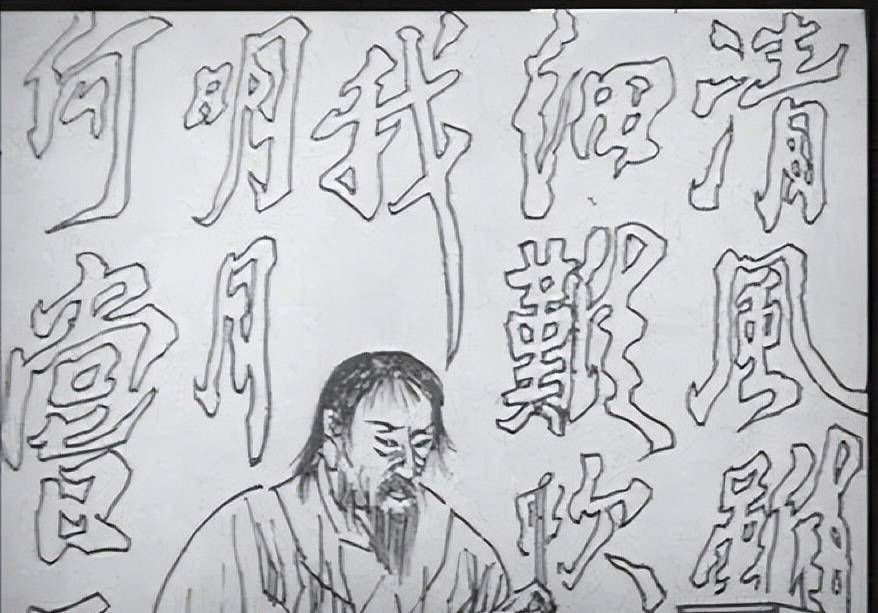 清風雖
細難吹
我
明月
何嘗